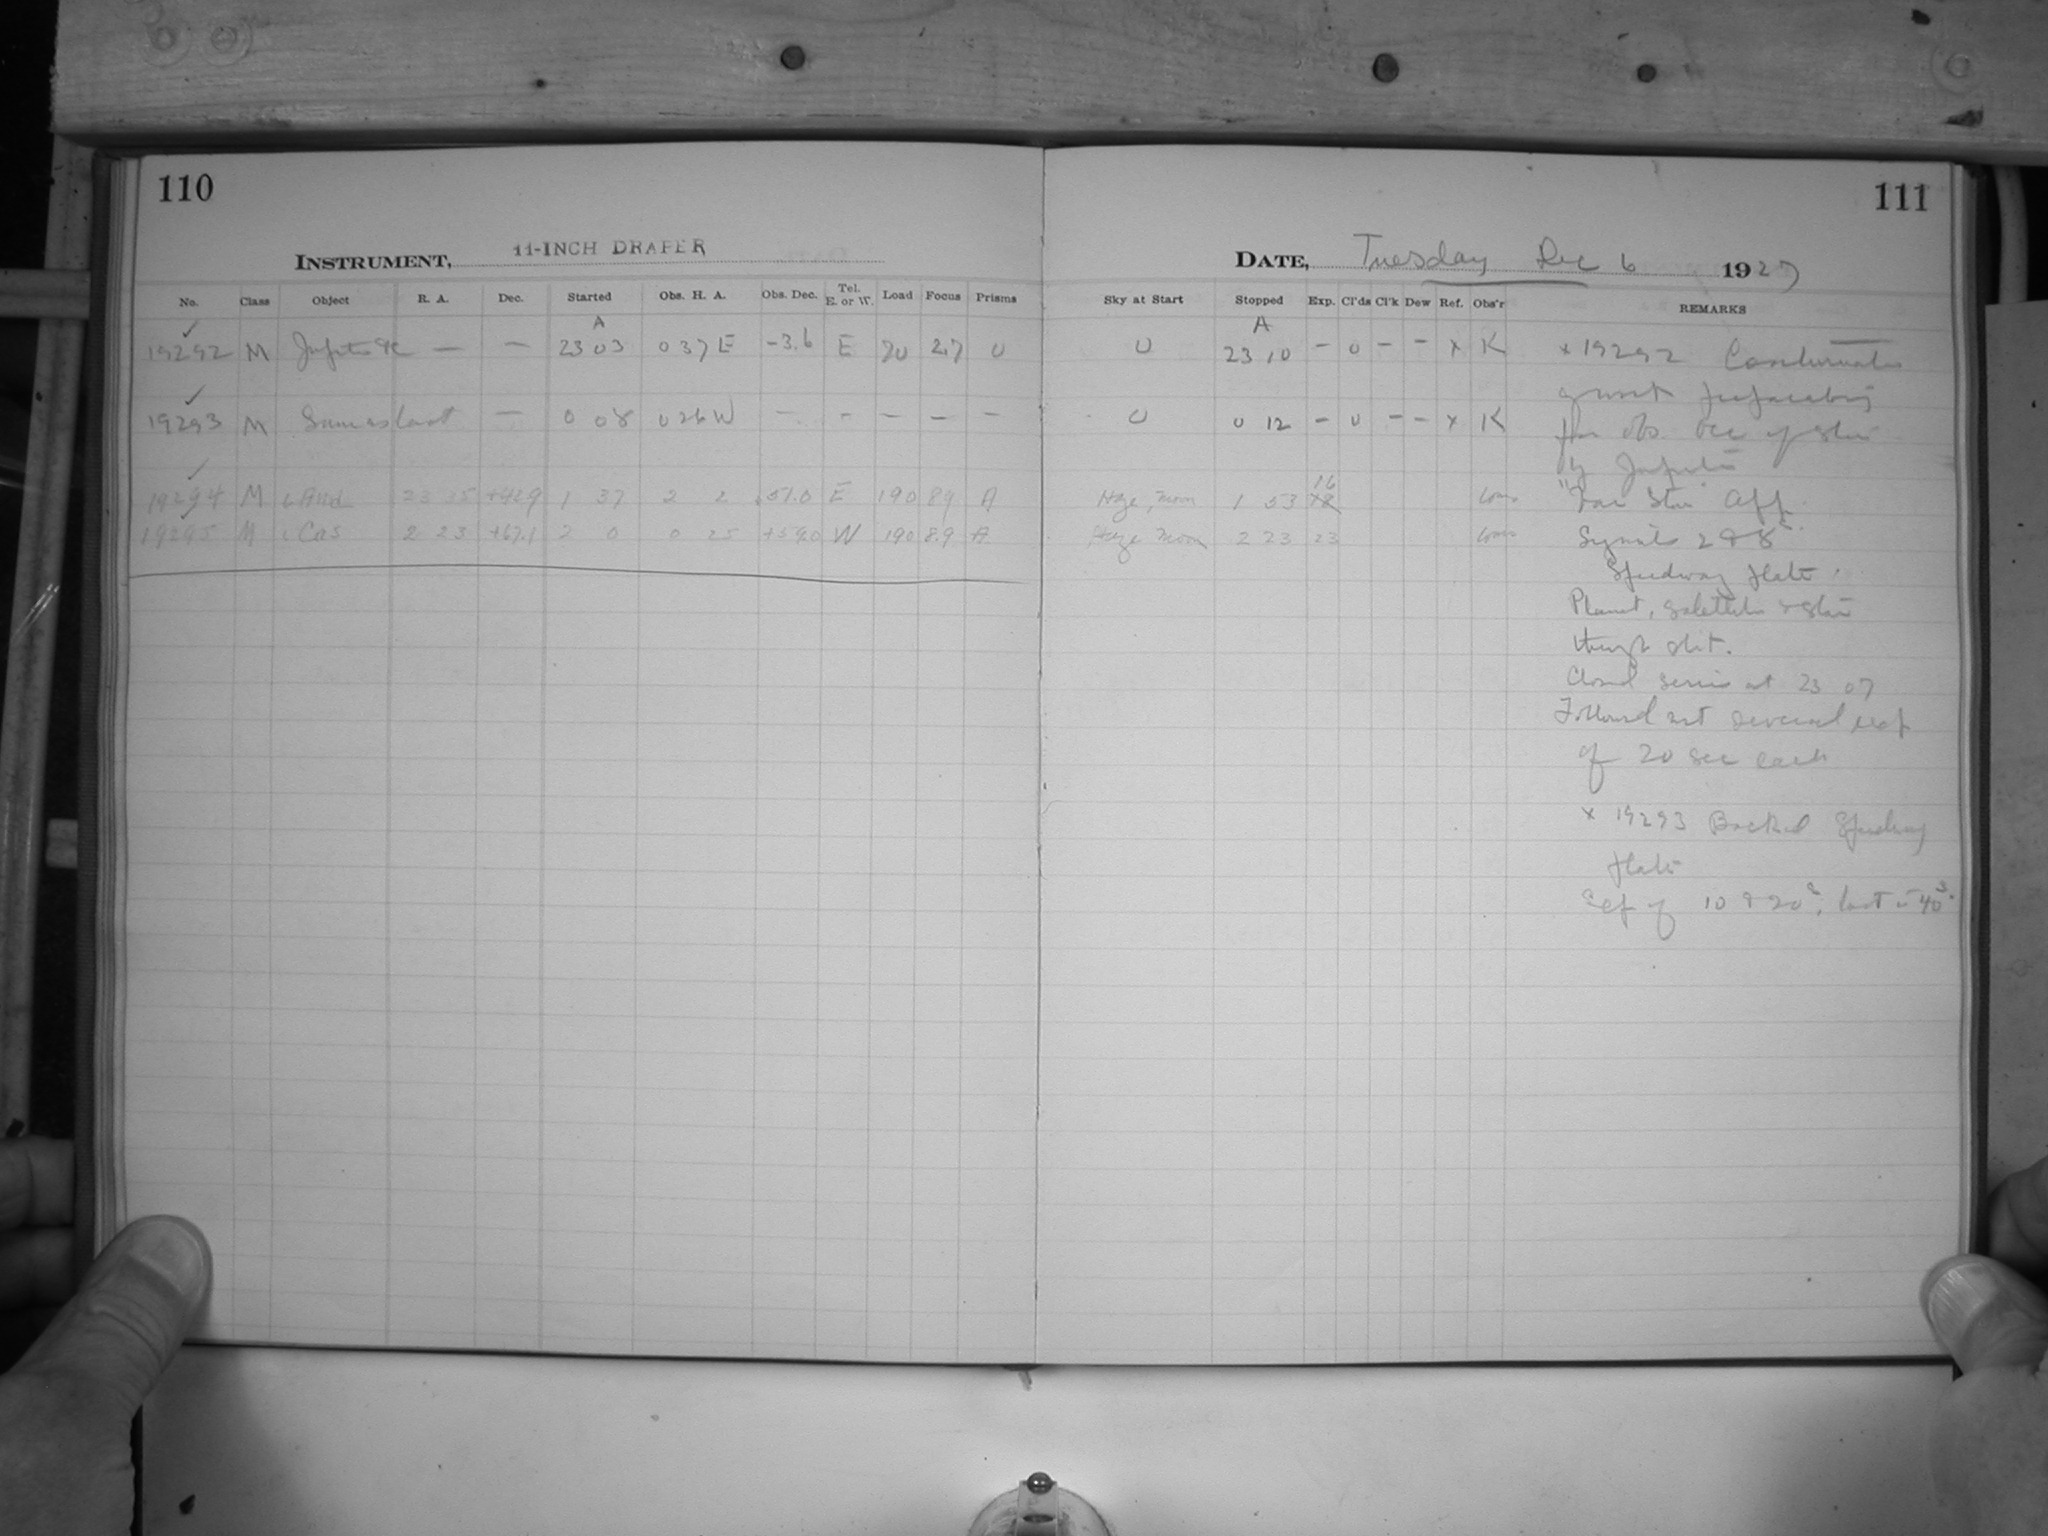 110
INSTRUMENT, 11-INCH DRAPER
No. Class Object R. A. Dec. Started Obs. H. A. Obs. Dec. Tel. E. or W. Load Focus Prisms
A
19292 M Jupiter — — 23 03 0 37 E -3.6 E 20 2.7 0
19293 M Same as last — 0 08 0 26 W - - - - -
19294 M And 23 35 +42.9 1 37 2 2 51.0 E 190 8.9 A
19295 M Cas 2 23 +67.1 2 0 0 25 +59.0 W 190 8.9 A
111
DATE, Tuesday Dec 6 1927
Sky at Start Stopped Exp. Cl'ds Cl'k Dew Ref. Obs'r REMARKS
A
0 23 10 - 0 - - x K x 19292
0 0 12 - 0 - - x K
for obs. occ of star
by Jupiter
16
Haze, moon 1 53 "Var Star" app.
Haze moon 2 23 23 2 & 8
Speedway plate.
Planet, & star
through slit.
Closed series at 23 07
Followed several exp
of 20 sec each
x 19293 Backed Speedway
plate
Exp of 10 & 20s, last 40s.